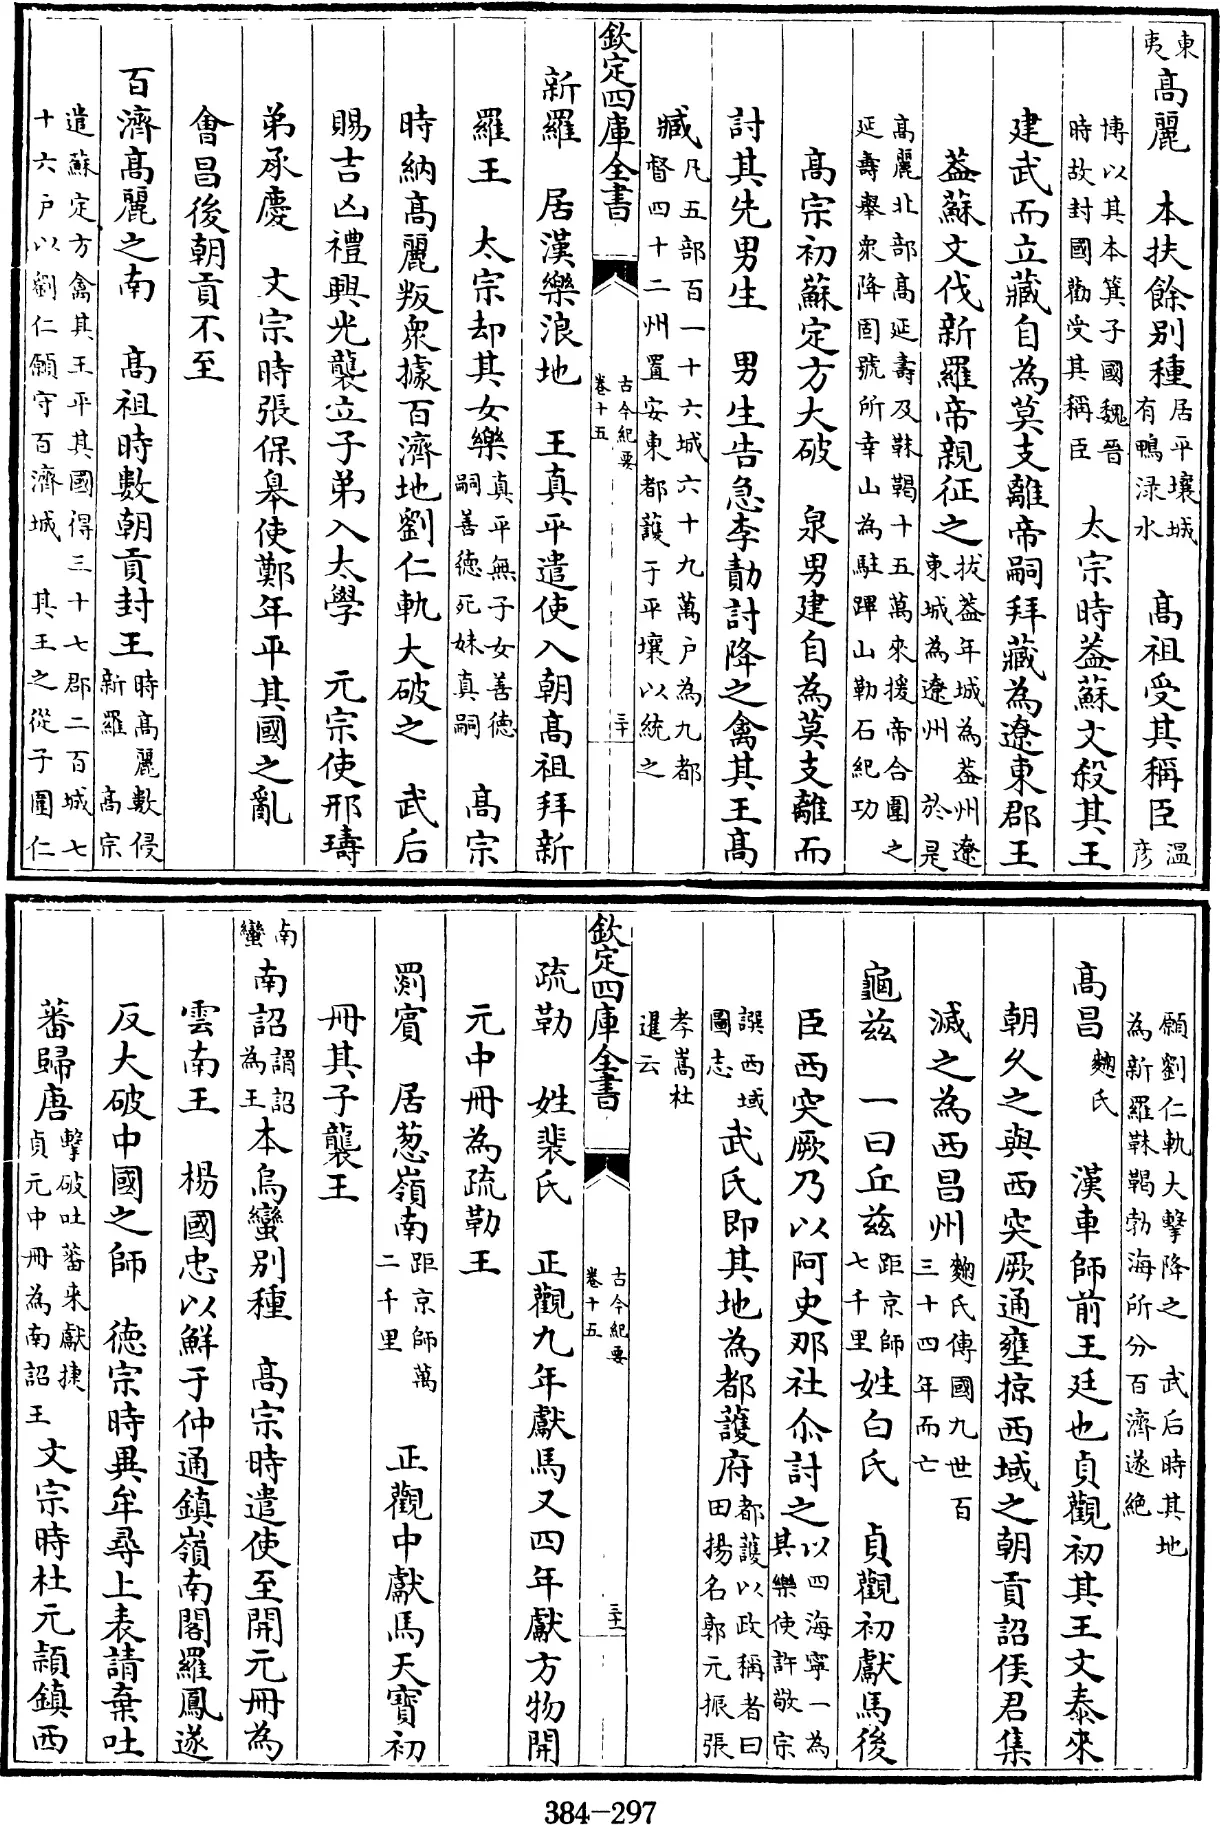 東夷 高麗 本扶餘別種居平壤城有鴨淥水 高祖受其稱臣温彦
博以其本箕子國魏晉時故封國勸受其稱臣 太宗時蓋蘇文殺其王
建武而立藏自為莫支離帝嗣拜藏為遼東郡王
蓋蘇文伐新羅帝親征之拔蓋年城為蓋州遼東城為遼州 於是
高麗北部高延壽及靺鞨十五萬來援帝合圍之延壽舉衆降固號所幸山為駐蹕山勒石紀功
高宗初蘇定方大破 泉男建自為莫支離而
討其先男生 男生告急李勣討降之禽其王高
臧凡五部百一十六城六十九萬户為九都督四十二州置安東都護于平壤以統之
欽定四庫全書 古今紀要卷十五 三十
新羅 居漢樂浪地 王真平遣使入朝高祖拜新
羅王 太宗却其女樂真平無子女善德嗣善德死妹真嗣 高宗
時納高麗叛衆據百濟地劉仁軌大破之 武后
賜吉凶禮興光襲立子弟入太學 元宗使邢璹
弟承慶 文宗時張保皋使鄭年平其國之亂
會昌後朝貢不至
百濟高麗之南 高祖時數朝貢封王時高麗數侵新羅 高宗
遣蘇定方禽其王平其國得三十七郡二百城七十六户以劉仁願守百濟城 其王之從子圍仁
願劉仁軌大擊降之 武后時其地為新羅靺鞨勃海所分百濟遂絶
高昌麴氏 漢車師前王廷也貞觀初其王文泰來
朝久之與西突厥通壅掠西域之朝貢詔侯君集
滅之為西昌州麴氏傳國九世百三十四年而亡
龜茲 一曰丘茲距京師七千里姓白氏 貞觀初獻馬後
臣西突厥乃以阿史那社尒討之以四海寧一為其樂使許敬宗
譔西域圖志 武氏即其地為都護府都護以政稱者曰田揚名郭元振張
孝嵩杜暹云
欽定四庫全書 古今紀要卷十五 三十一
疏勒 姓裴氏 正觀九年獻馬又四年獻方物開
元中冊為疏勒王
罽賓 居葱嶺南距京師萬二千里 正觀中獻馬天寶初
冊其子襲王
南蠻 南詔謂詔為王本烏蠻別種 高宗時遣使至開元冊為
雲南王 楊國忠以鮮于仲通鎮嶺南閣羅鳳遂
反大破中國之師 德宗時異牟尋上表請棄吐
蕃歸唐擊破吐蕃來獻捷貞元中冊為南詔王 文宗時杜元頴鎮西
384-297